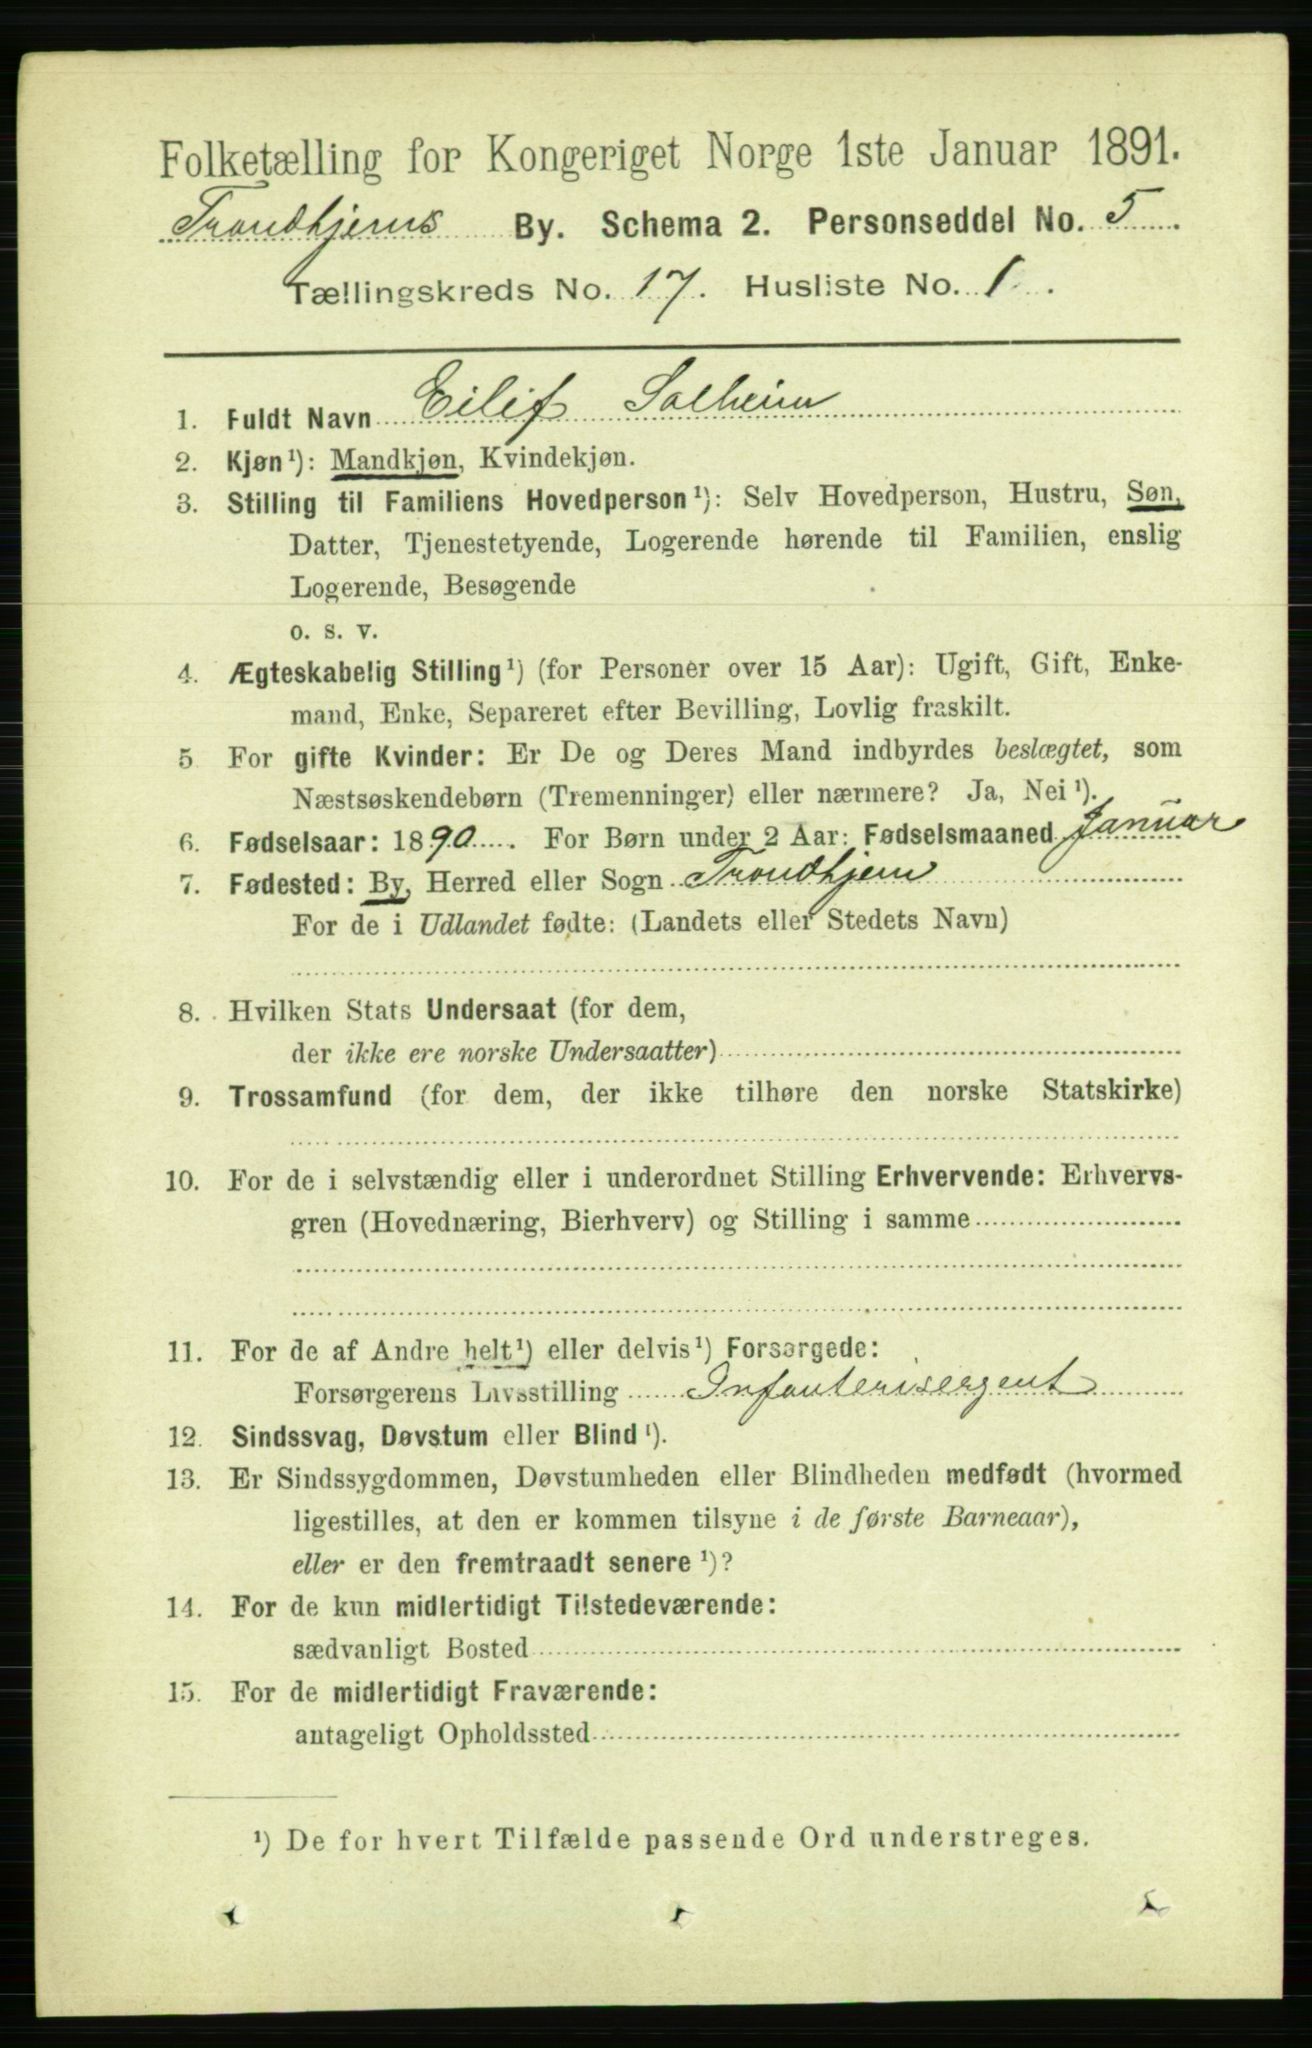 Folketælling for Kongeriget Norge 1ste Januar 1891.
Trondhjems By. Schema 2. Personseddel No. 5
Tællingskreds No. 17. Husliste No. 1.
1. Fuldt Navn Eilif Solheim
2. Kjøn¹): Mandkjøn, Kvindekjøn.
3. Stilling til Familiens Hovedperson¹): Selv Hovedperson, Hustru, Søn,
Datter, Tjenestetyende, Logerende hørende til Familien, enslig
Logerende, Besøgende
o. s. v.
4. Ægteskabelig Stilling¹) (for Personer over 15 Aar): Ugift, Gift, Enke-
mand, Enke, Separeret efter Bevilling, Lovlig fraskilt.
5 For gifte Kvinder: Er De og Deres Mand indbyrdes beslægtet, som
Næstsøskendebørn (Tremenninger) eller nærmere? Ja, Nei¹).
6. Fødselsaar: 1890. For Børn under 2 Aar: Fødselsmaaned Januar
7. Fødested: By, Herred eller Sogn Trondhjem
For de i Udlandet fødte: (Landets eller Stedets Navn)
8. Hvilken Stats Undersaat (for dem,
der ikke ere norske Undersaatter)
9. Trossamfund (for dem, der ikke tilhøre den norske Statskirke)
10. For de i selvstændig eller i underordnet Stilling Erhvervende: Erhvervs-
gren (Hovednæring, Bierhverv) og Stilling i samme
11. For de af Andre helt¹) eller delvis¹) Forsørgede:
Forsørgerens Livsstilling Infanterisergent
12. Sindssvag, Døvstum eller Blind¹).
13. Er Sindssygdommen, Døvstumheden eller Blindheden medfødt (hvormed
ligestilles, at den er kommen tilsyne i de første Barneaar),
eller er den fremtraadt senere¹)?
14. For de kun midlertidigt Tilstedeværende:
sædvanligt Bosted
15. For de midlertidigt Fraværende:
antageligt Opholdssted
¹) De for hvert Tilfælde passende Ord understreges.